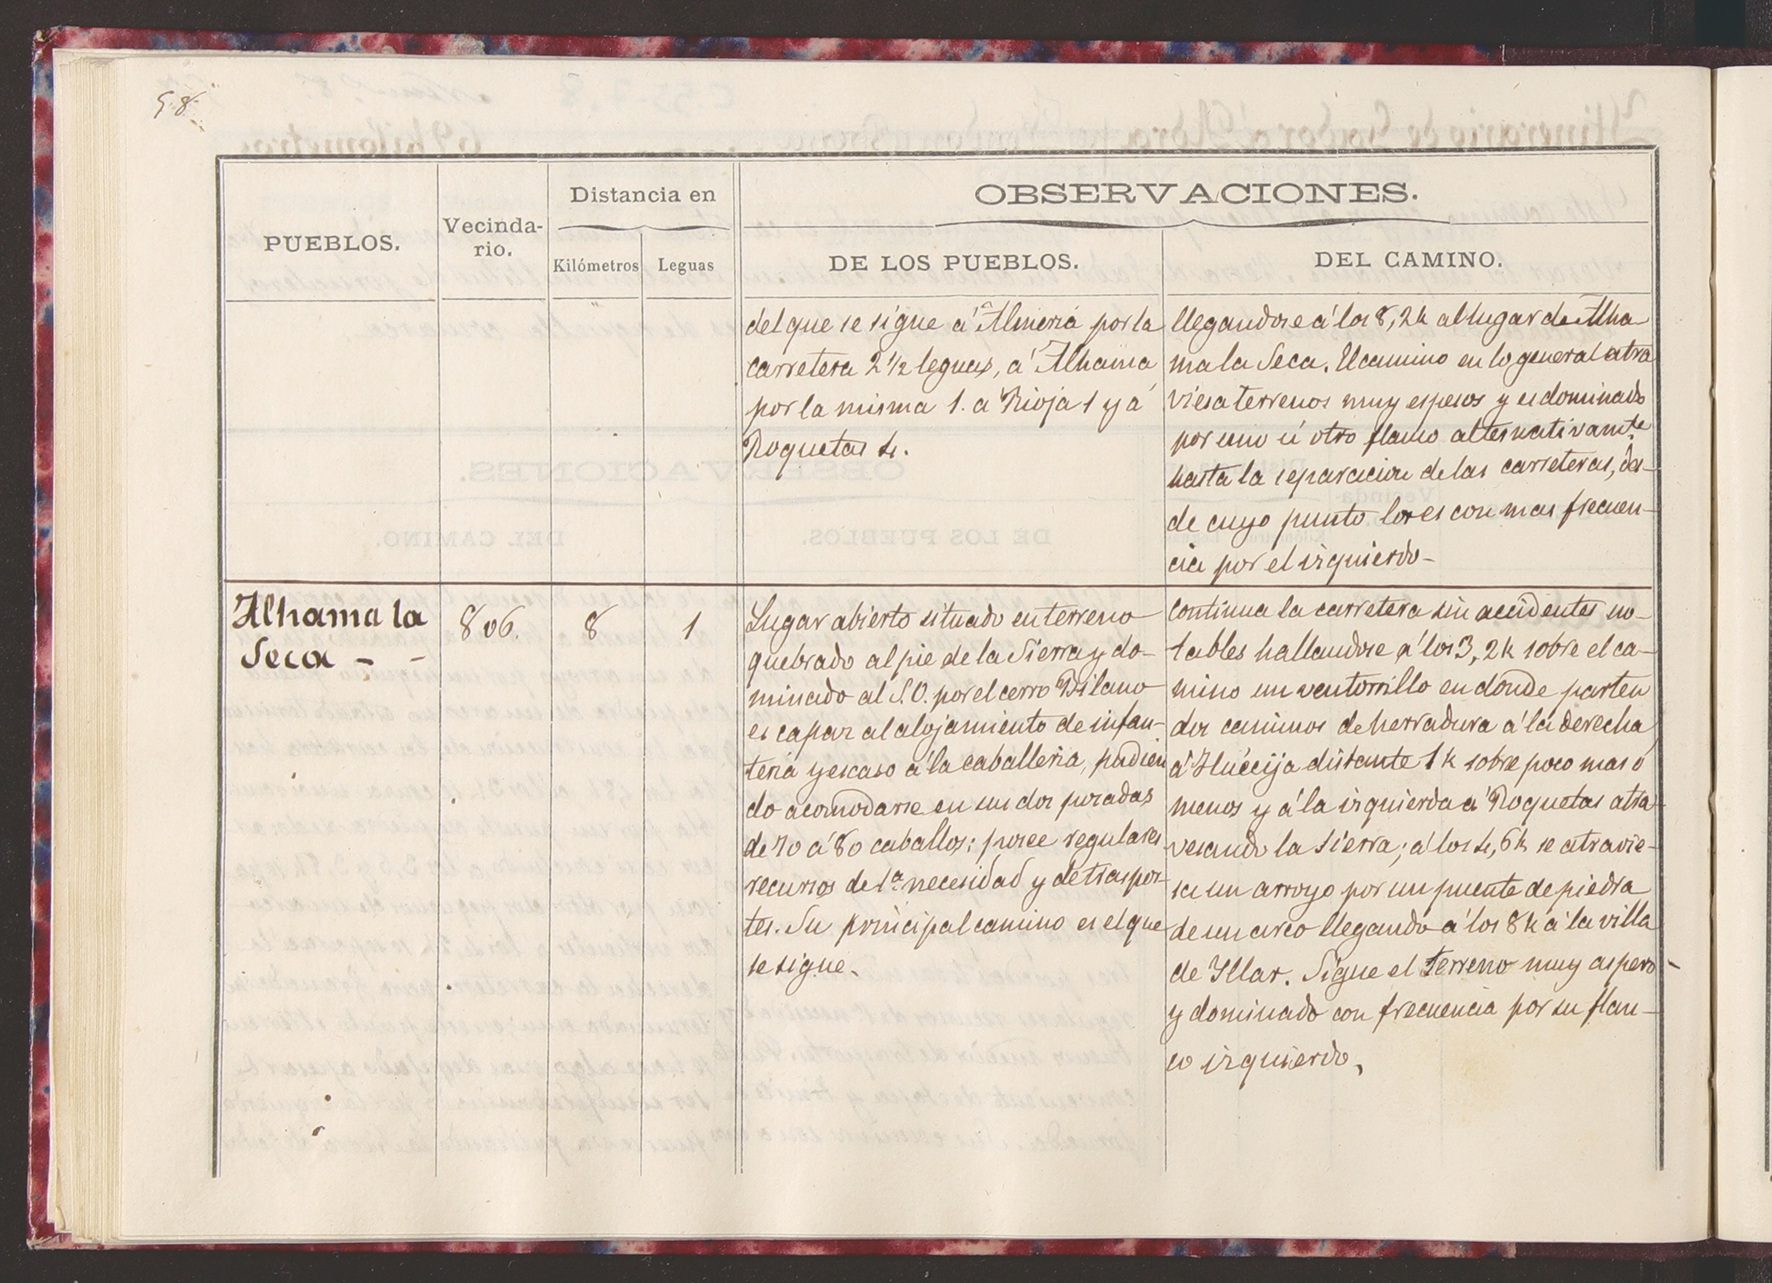 58
PUEBLOS.
Vecinda-
rio.
Distancia en
Kilómetros
Leguas
OBSERVACIONES.
DE LOS PUEBLOS.
DEL CAMINO.
del que se sigue á Almeria por la
carretera 2 1/2 leguas, á Alhama
por la misma 1. á Rioja 1 y á
Roquetas 4.
llegandose á los 8,2k al lugar de Alha
ma la Seca. El camino en lo general atra
viesa terrenos muy espesos y es dominado
por uno ú otro flanco alternativamte
hasta la separacion de las carreteras, des-
de cuyo punto lo es con mas frecuen-
cia por el izquierdo-
Alhama la
Seca - -
806.
8
1
Lugar abierto situado en terreno
quebrado al pie de la Sierra y do-
minado al S.O. por el cerro Milano
es capaz al alojamiento de infan-
teria y escaso á la caballeria, pudien
do acomodarse en sus dos posadas
de 70 á 80 caballos: posee regulares
recursos de 1ª necesidad y de traspor-
tes. Su principal camino es el que
se sigue.
Continua la carretera sin accidentes no-
tables hallandose á los 3,2k sobre el ca-
mino un ventorrillo en donde parten
dos caminos de herradura á la derecha
á Huécija distante 1k sobre poco mas ó
menos y á la izquierda á Roquetas atra-
vesando la Sierra; á los 4,6k se atravie-
sa un arroyo por un puente de piedra
de un arco llegando á los 8k á la villa
de Yllar. Sigue el terreno muy aspero-
y dominado con frecuencia por su flan-
co izquierdo.